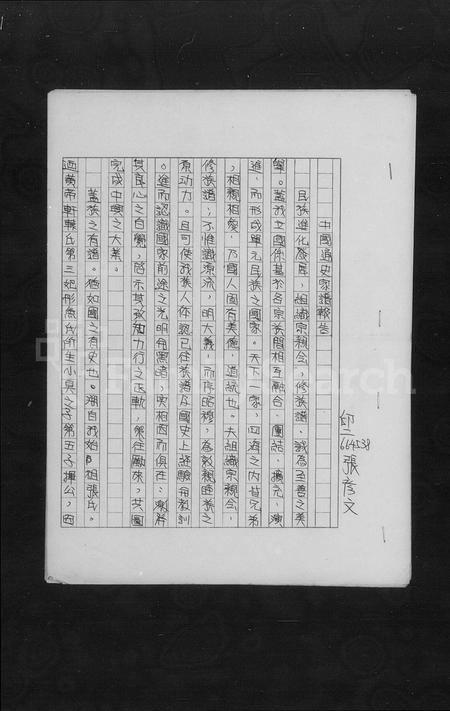 中國通史家譜報告
664538
張彥文
民族進化發展，組織宗親會，修族譜，誠為至善之美
舉。蓋我立國係基於各宗族間相互融合、團結、擴充、演
進，而形成單元民族之國家。天下一家，四海之內皆兄弟
，相親相愛，乃國人固有美德，道統也。夫組織宗親會，
修族譜；不惟識源流，明大義，而序昭穆，為敦親睦族之
原動力。且可使我族人体認已往族譜及國史上經驗和教訓
。進而認識國家前途之光明和黑暗，與相因而俱在；激昂
其良心之自覺，啓示其孜孜力行之正軌，策往勵來，共圖
完成中興之大業。
蓋族之有譜。猶如國之有史也。溯自我始祖張氏。
迺黃帝軒轅氏第三妃彤魚氏所生小昊之子第五子揮公，因